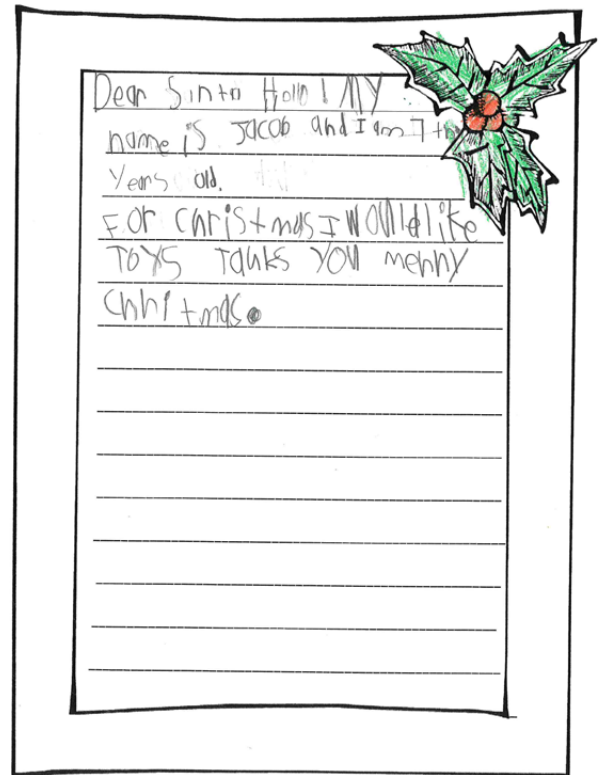 Dear Sinta Hollo! MY
name is Jacob and I am 7 th
years old.
For Christmas I would like
Toys Tanks you menny
Chhitmas.